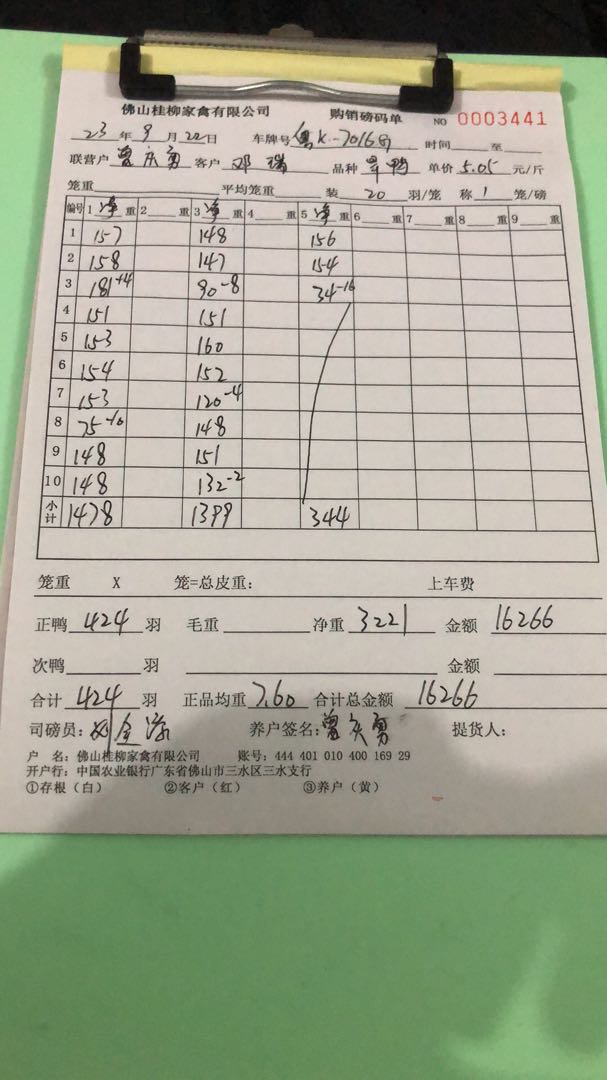 佛山桂柳家禽有限公司 购销磅码单 NO 0003441
23年9月22日 车牌号 粤K-7016 时间 至
联营户 曾庆勇 客户 邓瑞 品种 鸭 单价 5.05 元/斤
笼重 平均笼重 装 20 羽/笼 称 1 笼/磅
编号 1 净 重 2 重 3 净 重 4 重 5 净 重 6 重 7 重 8 重 9 重
1 157 148 156
2 158 147 154
3 181+4 90-8 34-16
4 151 151
5 153 160
6 154 152
7 153 120-4
8 75-10 148
9 148 151
10 148 132-2
小计 1478 1399 344
笼重 X 笼=总皮重: 上车费
正鸭 424 羽 毛重 净重 3221 金额 16266
次鸭 羽 金额
合计 424 羽 正品均重 7.60 合计总金额 16266
司磅员: 养户签名: 曾庆勇 提货人:
户 名: 佛山桂柳家禽有限公司 账号: 444 401 010 400 169 29
开户行: 中国农业银行广东省佛山市三水区三水支行
①存根（白） ②客户（红） ③养户（黄）